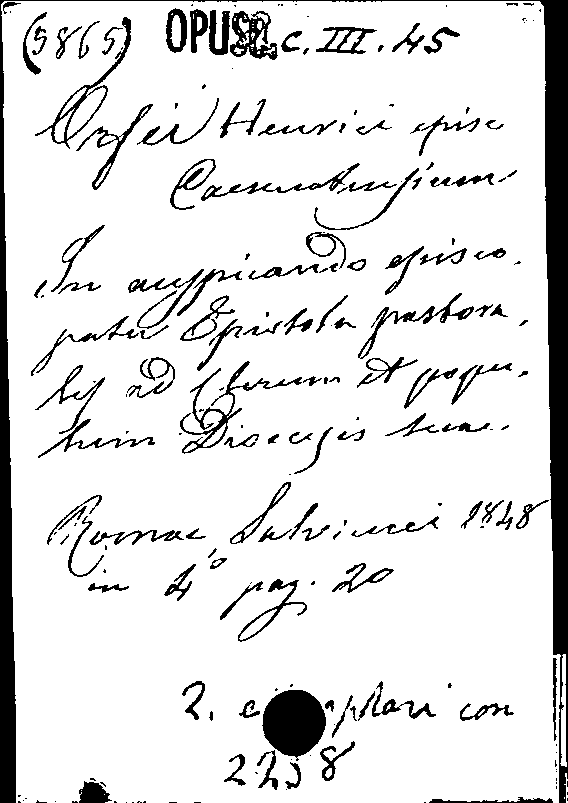 (5865) OPUSC. III. 45
Orfei Henrici episc
Caesenatensium
In auspicando episco-
patu Epistola pastora-
lis ad Clerum et popu-
lum Dioecesis suae.
Romae, Salviucci 1848
in 4° pag. 20
2. esemplari con
2258